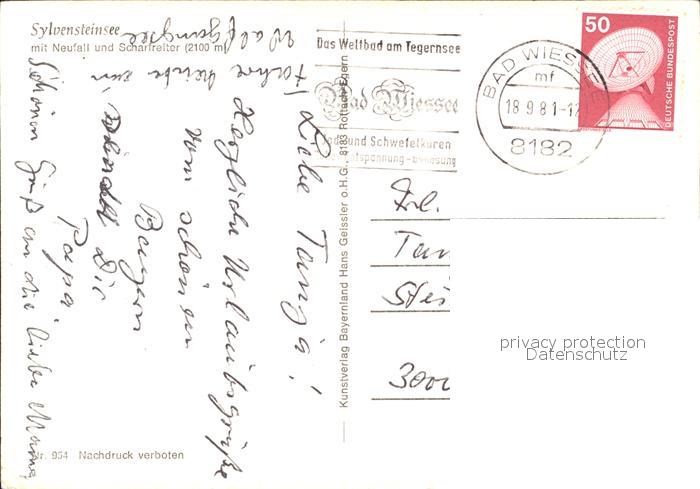 Sylvensteinsee
mit Neufall und Scharfreiter (2100 m)
Liebe Tanja!
Herzliche Urlaubsgrüße
vom schönen
Bayern
Dir
Papa
fahre heute zum
Wolfgangsee
Schönen Gruß an die liebe Mama
Nr. 954 Nachdruck verboten
Kunstverlag Bayernland Hans Geissler o.H.G., 8183 Rottach-Egern
Das Weltbad am Tegernsee
Bad Wiessee
Jod und Schwefelkuren
BAD WIESSEE
mf
18.9.81-12
8182
50
DEUTSCHE BUNDESPOST
Frl.
Tan
Stei
3000
privacy protection
Datenschutz